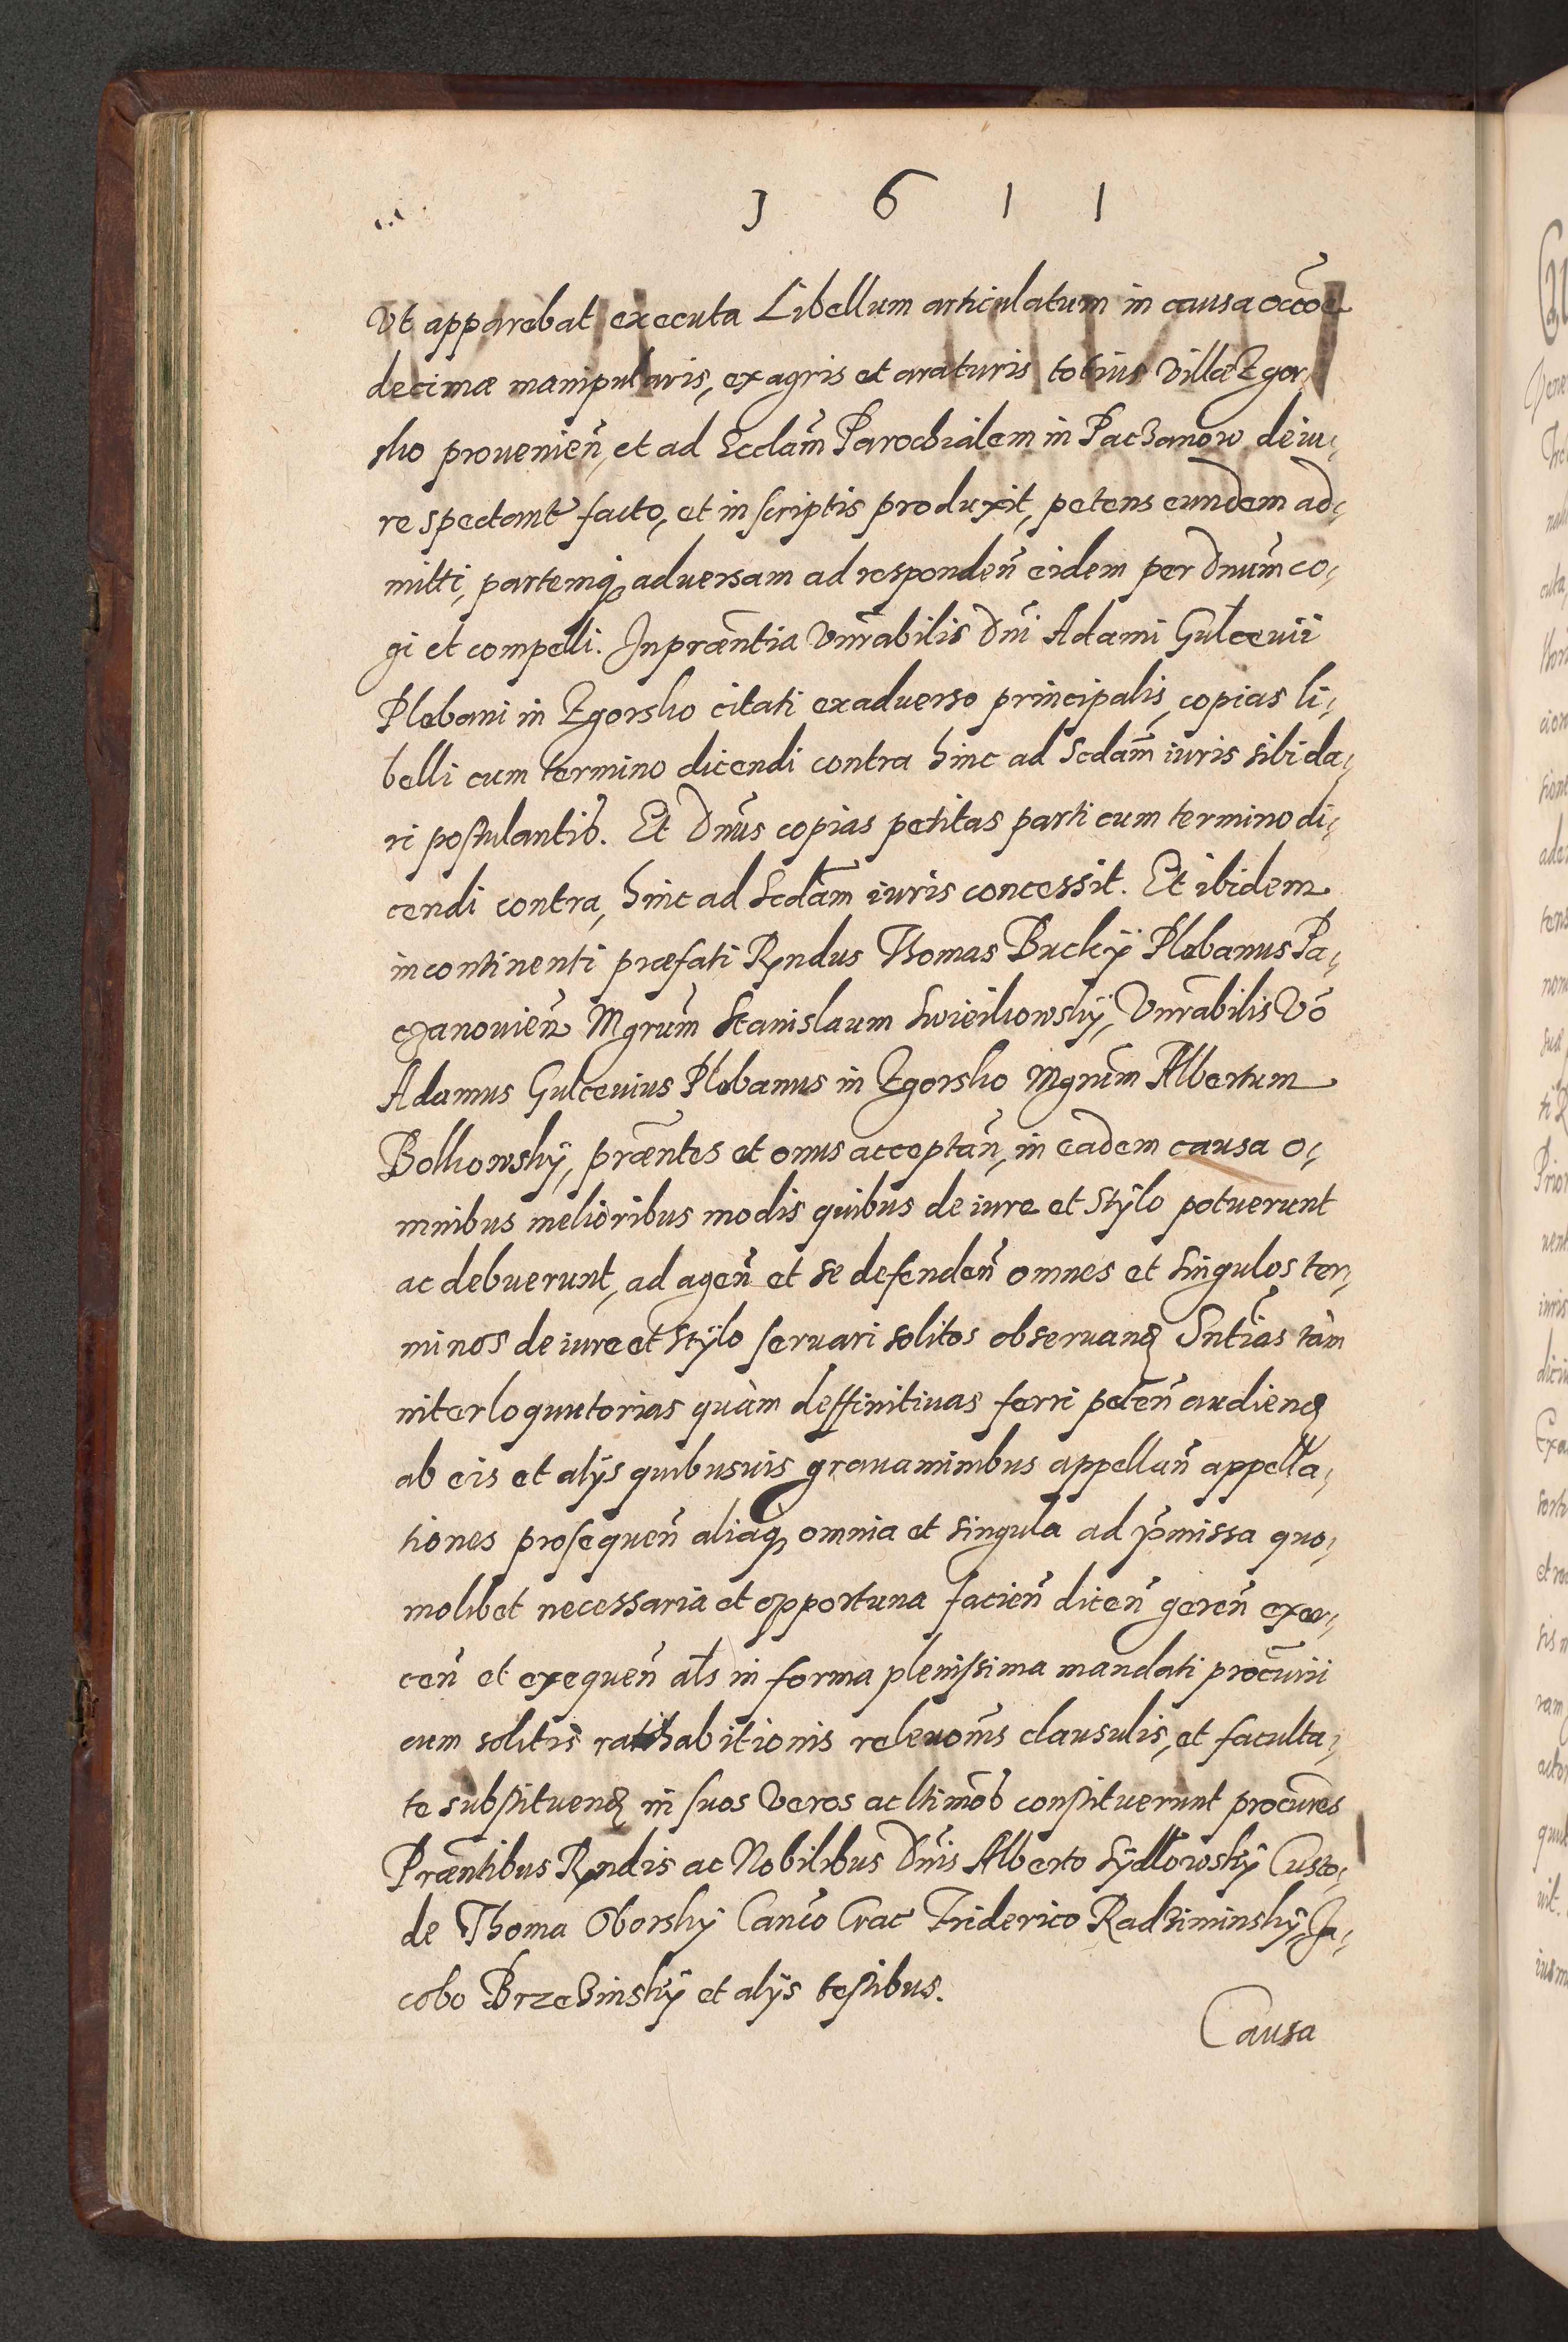 1 6 1 1
Vt apparebat executa Libellum articulatum in causa occõe
decimæ manipularis, ex agris et araturis totius Villæ Zgor¸
sko prouenieñ, et ad Ecclam̃ Parochialem in Paczanow de iu¸
re spectant facto, et in scriptis produxit, petens eundem ad¸
mitti, partemq₃ aduersam ad respondeñ eidem per Dnum̃ co¸
gi et compelli. In præñtia Vnr̃abilis Dñi Adami Gulcevii
Plebani in Zgorsko citati ex aduerso principalis, copias li¸
belli cum termino dicendi contra hinc ad Scdam̃ iuris sibi da¸
ri postulantiɓ. Et Dnũs copias petitas parti cum termino di¸
cendi contra, hinc ad Scdam̃ iuris concessit. Et ibidem
in continenti præfati Rndus Thomas Buckÿ Plebanus Pa¸
czanouieñ Mgrum̃ Stanislaum Swieikowskÿ, Vnr̃abilis Võ
Adamus Gulcevius Plebanus in Zgorsko Mgrum̃ Albertum
Bolkowskÿ, præñtes et onus acceptañ, in eadem causa o¸
mnibus melioribus modis quibus de iure et Stÿlo potuerunt
ac debuerunt, ad ageñ et se defendeñ omnes et singulos ter¸
minos de iure et Stÿlo seruari solitos obseruandꝫ Sntĩas tàm
interloquutorias quàm deffinitiuas ferri peteñ audiendꝫ
ab eis et alÿs quibusuis grauaminibus appellañ appella¸
tiones prosequeñ aliaq₃ omnia et singula ad p̃missa quo¸
molibet necessaria et opportuna facieñ diceñ gereñ exer¸
ceñ et exequeñ als̃ in forma plenissima mandati procur̃ii
cum solitis ratihabitionis releuoñis clausulis, et faculta¸
te substituendꝫ in suos veros ac ltimõs constituerunt procurẽs
Præñtibus Rndis ac Nobilibus Dñis Alberto Sÿdlowskÿ Custo¸
de Thoma Oborskÿ Canc̃o Crac̃ Friderico Radziminskÿ, Ja¸
cobo Brzezinskÿ et alÿs testibus.
Causa